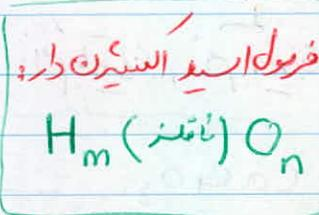 فرمول اسید اکسیژن دار:
H_m (نافلز) O_n